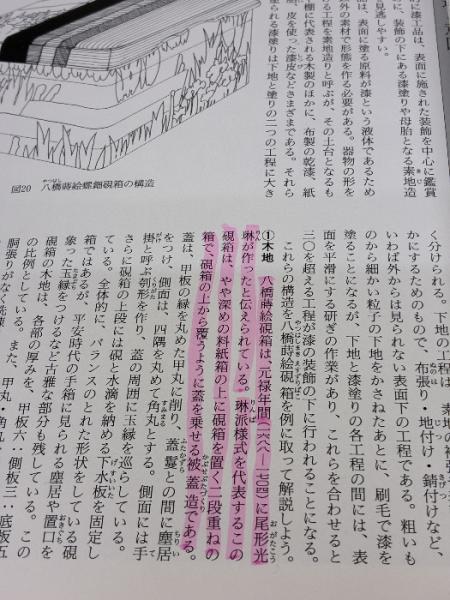 的に漆工品は、表面に施された装飾を中心に鑑賞
に、装飾の下にある漆塗りや母胎となる素地造
見逃しやすい。
品は、表面に塗る原料が漆という液体であるため
外の素材で形態を作る必要がある。器物の形を
る工程を素地造りと呼ぶが、その土台となるも
棚に代表される木製のほかに、布製の乾漆、紙
、皮を使った漆皮などさまざまである。それら
塗られる漆塗りは下地と塗りの二つの工程に大き
図20 八橋蒔絵螺鈿硯箱の構造
く分けられる。下地の工程は、素地の補強
かにするためのもので、布張り・地付け・錆付けなど、
いわば外からは見られない表面下の工程である。粗いも
のから細かい粒子の下地をかさねたあとに、刷毛で漆を
塗ることになるが、下地と漆塗りの各工程の間には、表
面を平滑にする研ぎの作業があり、これらを合わせると
三〇を超える工程が漆の装飾の下に行われることになる。
これらの構造を八橋蒔絵硯箱を例に取って解説しよう。
①木地 八橋蒔絵硯箱は、元禄年間(一六八八―一七〇四)に尾形光
琳が作ったと伝えられている。琳派様式を代表するこの
硯箱は、やや深めの料紙箱の上に硯箱を置く二段重ねの
箱で、硯箱の上から覆うように蓋を乗せる被蓋造である。
蓋は、甲板の縁を丸めた甲丸に削り、蓋鬘との間に塵居
をつけ、側面は、四隅を丸めて角丸とする。側面には手
掛と呼ぶ刳形を作り、蓋の周囲に玉縁を巡らしている。
さらに硯箱の上段には硯と水滴を納める下水板を固定し
ている。全体的に、バランスのとれた形状をしている硯
箱ではあるが、平安時代の手箱に見られる塵居や置口を
象った玉縁をつけるなど古雅な部分も残している。この
硯箱の木地は、各部の厚みを、甲板六：側板三：底板五
の比例としている。また、甲丸・角丸
胴張りがなく洗練